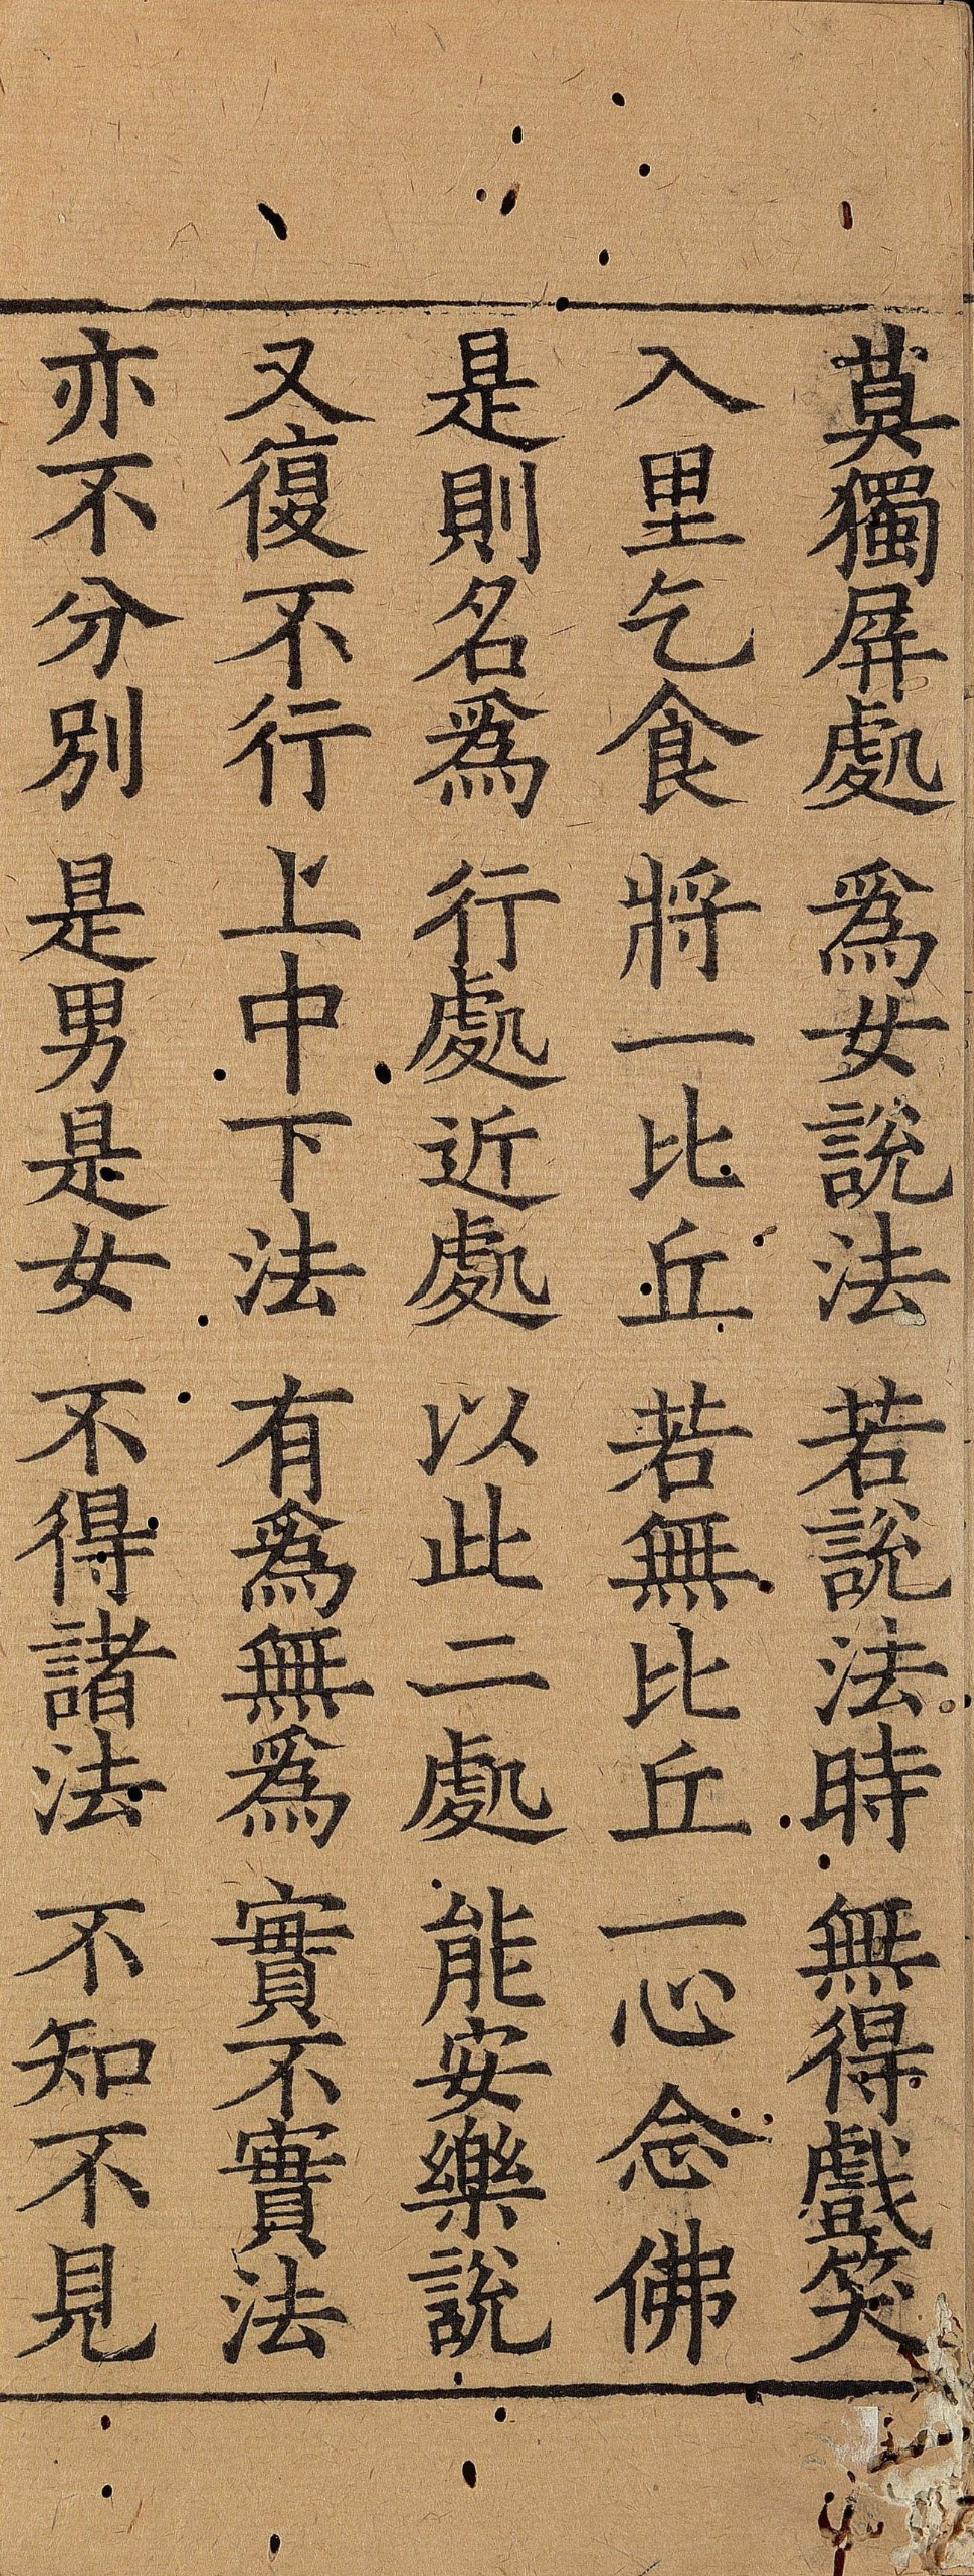 莫獨屏處 爲女說法 若說法時 無得戲笑
入里乞食 將一比丘 若無比丘 一心念佛
是則名爲 行處近處 以此二處 能安樂說
又復不行 上中下法 有爲無爲 實不實法
亦不分別 是男是女 不得諸法 不知不見